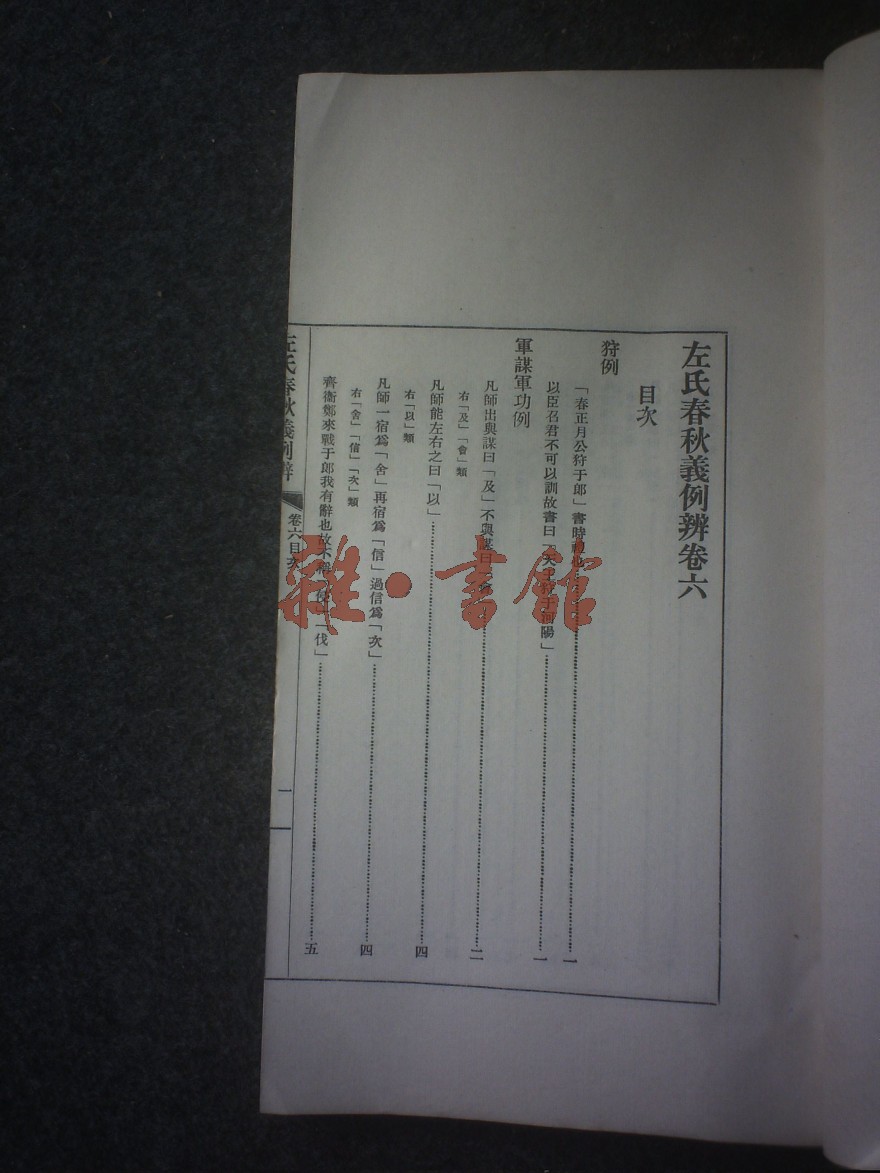 左氏春秋義例辨卷六
目次
狩例
「春正月公狩于郎」書時禮也……一
以臣召君不可以訓故書曰「天王狩于河陽」……一
軍謀軍功例
凡師出與謀曰「及」不與謀曰「會」……二
右「及」「會」類
凡師能左右之曰「以」……四
右「以」類
凡師一宿爲「舍」再宿爲「信」過信爲「次」……四
右「舍」「信」「次」類
齊衞鄭來戰于郎我有辭也故不稱「侵」「伐」……五
左氏春秋義例辨
卷六目次
一
雜·書館